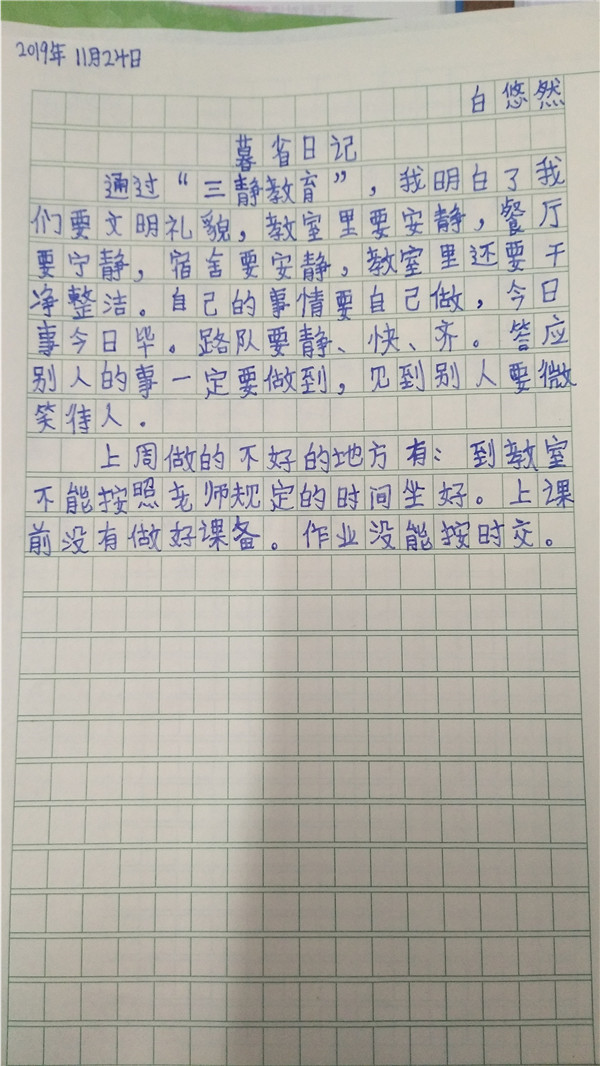 2019年 11月24日
白悠然
暮省日记
通过“三静教育”，我明白了我
们要文明礼貌，教室里要安静，餐厅
要宁静，宿舍要安静，教室里还要干
净整洁。自己的事情要自己做，今日
事今日毕。路队要静、快、齐。答应
别人的事一定要做到，见到别人要微
笑待人．
上周做的不好的地方有：到教室
不能按照老师规定的时间坐好。上课
前没有做好课备。作业没能按时交。